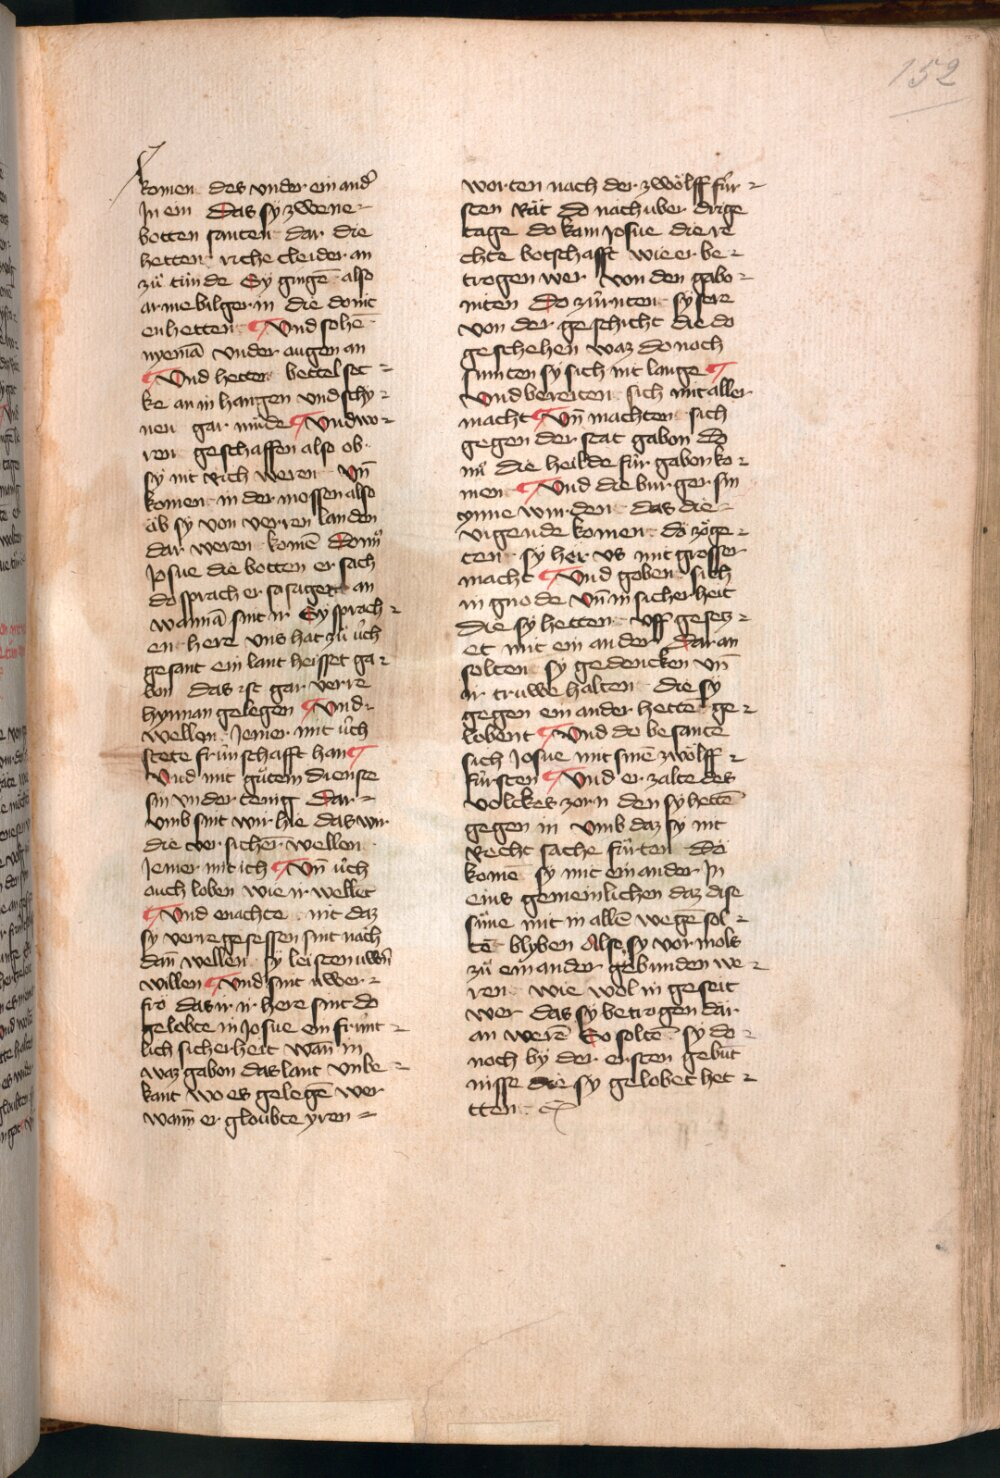 152
komen des vnder ein and̾
Jn ein Das sy zwene
botten santen dar die
hetten riche cleider an
zů tůnde Sy gingē also
arme bilgerin die do nit
enhetten ¶ Vnd sohē
nyemā vnder augen an
¶ Vnd hetten bettel sec
ke an in hangen vnd schy
nen gar můde ¶ Vnd wo
ren geschaffen also ob
sy nit Rich weren Vn̄
komen in der mossen also
ob sy von verren landen
dar weren komē Do nů
Josue die botten er sach
do sprach er so sagent an
wannā sint ir Sy sprach
en here vns hat zů ůch
gesant ein lant heisset ga
bon das ist gar verre
hynnan gelegen ¶ Vnd
wellen Jemer mit ůch
stete frůnschafft han ¶
Vnd mit gůtem dienste
sin vnder tenig Dar
vmb sint wir hie das wir
die ver sicher wellen
Jemer mit ich ¶ Vn̄ ůch
auch loben wie ir wellit
¶ Vnd enachte nit daz
sy verre gesessen sint nach
dan̄ wellen sy leisten uwn̄
willen ¶ Vnd sint uwer
fro das ir ir here sint do
gelobte in Josue ein frůnt
lich sicherheit wan̄ in
waz gabon das lant vnbe
kant wo es gelegē wer
wann er gloubte yren
worten nach der zwölff fůr
sten Rät do nach uber drige
tage do kam Josue die re
chte botschafft wie er be
trogen wer von den gabo
niten Do zůrnten sy sere
von der geschicht die do
geschehen waz do noch
sumten sy sich nit lange ¶
Vnd bereiten sich mit aller
macht ¶ Vn̄ machten sich
gegen der stat gabon do
nů die heilde fůr gabon ko
men ¶ Vnd die burger sin
ynne wurden das die
vigende komen do zöge
ten sy her vs mit grosser
macht ¶ Vnd goben sich
in gnode Vn̄ in sicherheit
die sy hetten vff gesetz
et mit ein ander Daran
solten sy gedencken vn̄
ir truwe halten die sy
gegen ein ander hettē ge
lobent ¶ Vnd do besante
sich Josue mit sinē zwölff
fůrsten ¶ Vnd er zalte des
volckes zorn den sy hettē
gegen in vmb daz sy nit
Recht sache fůrten do
komē sy mit ein ander Jn
eins gemeinlichen daz dise
sůne mit in allē wegē sol
tē blyben Also sy vormols
zů ein ander gebunden we
ren wie wol in geseit
wer das sy betrogen dar
an werē So soltē sy do
noch by der ersten gebůt
nisse die sy gelobet het
tten